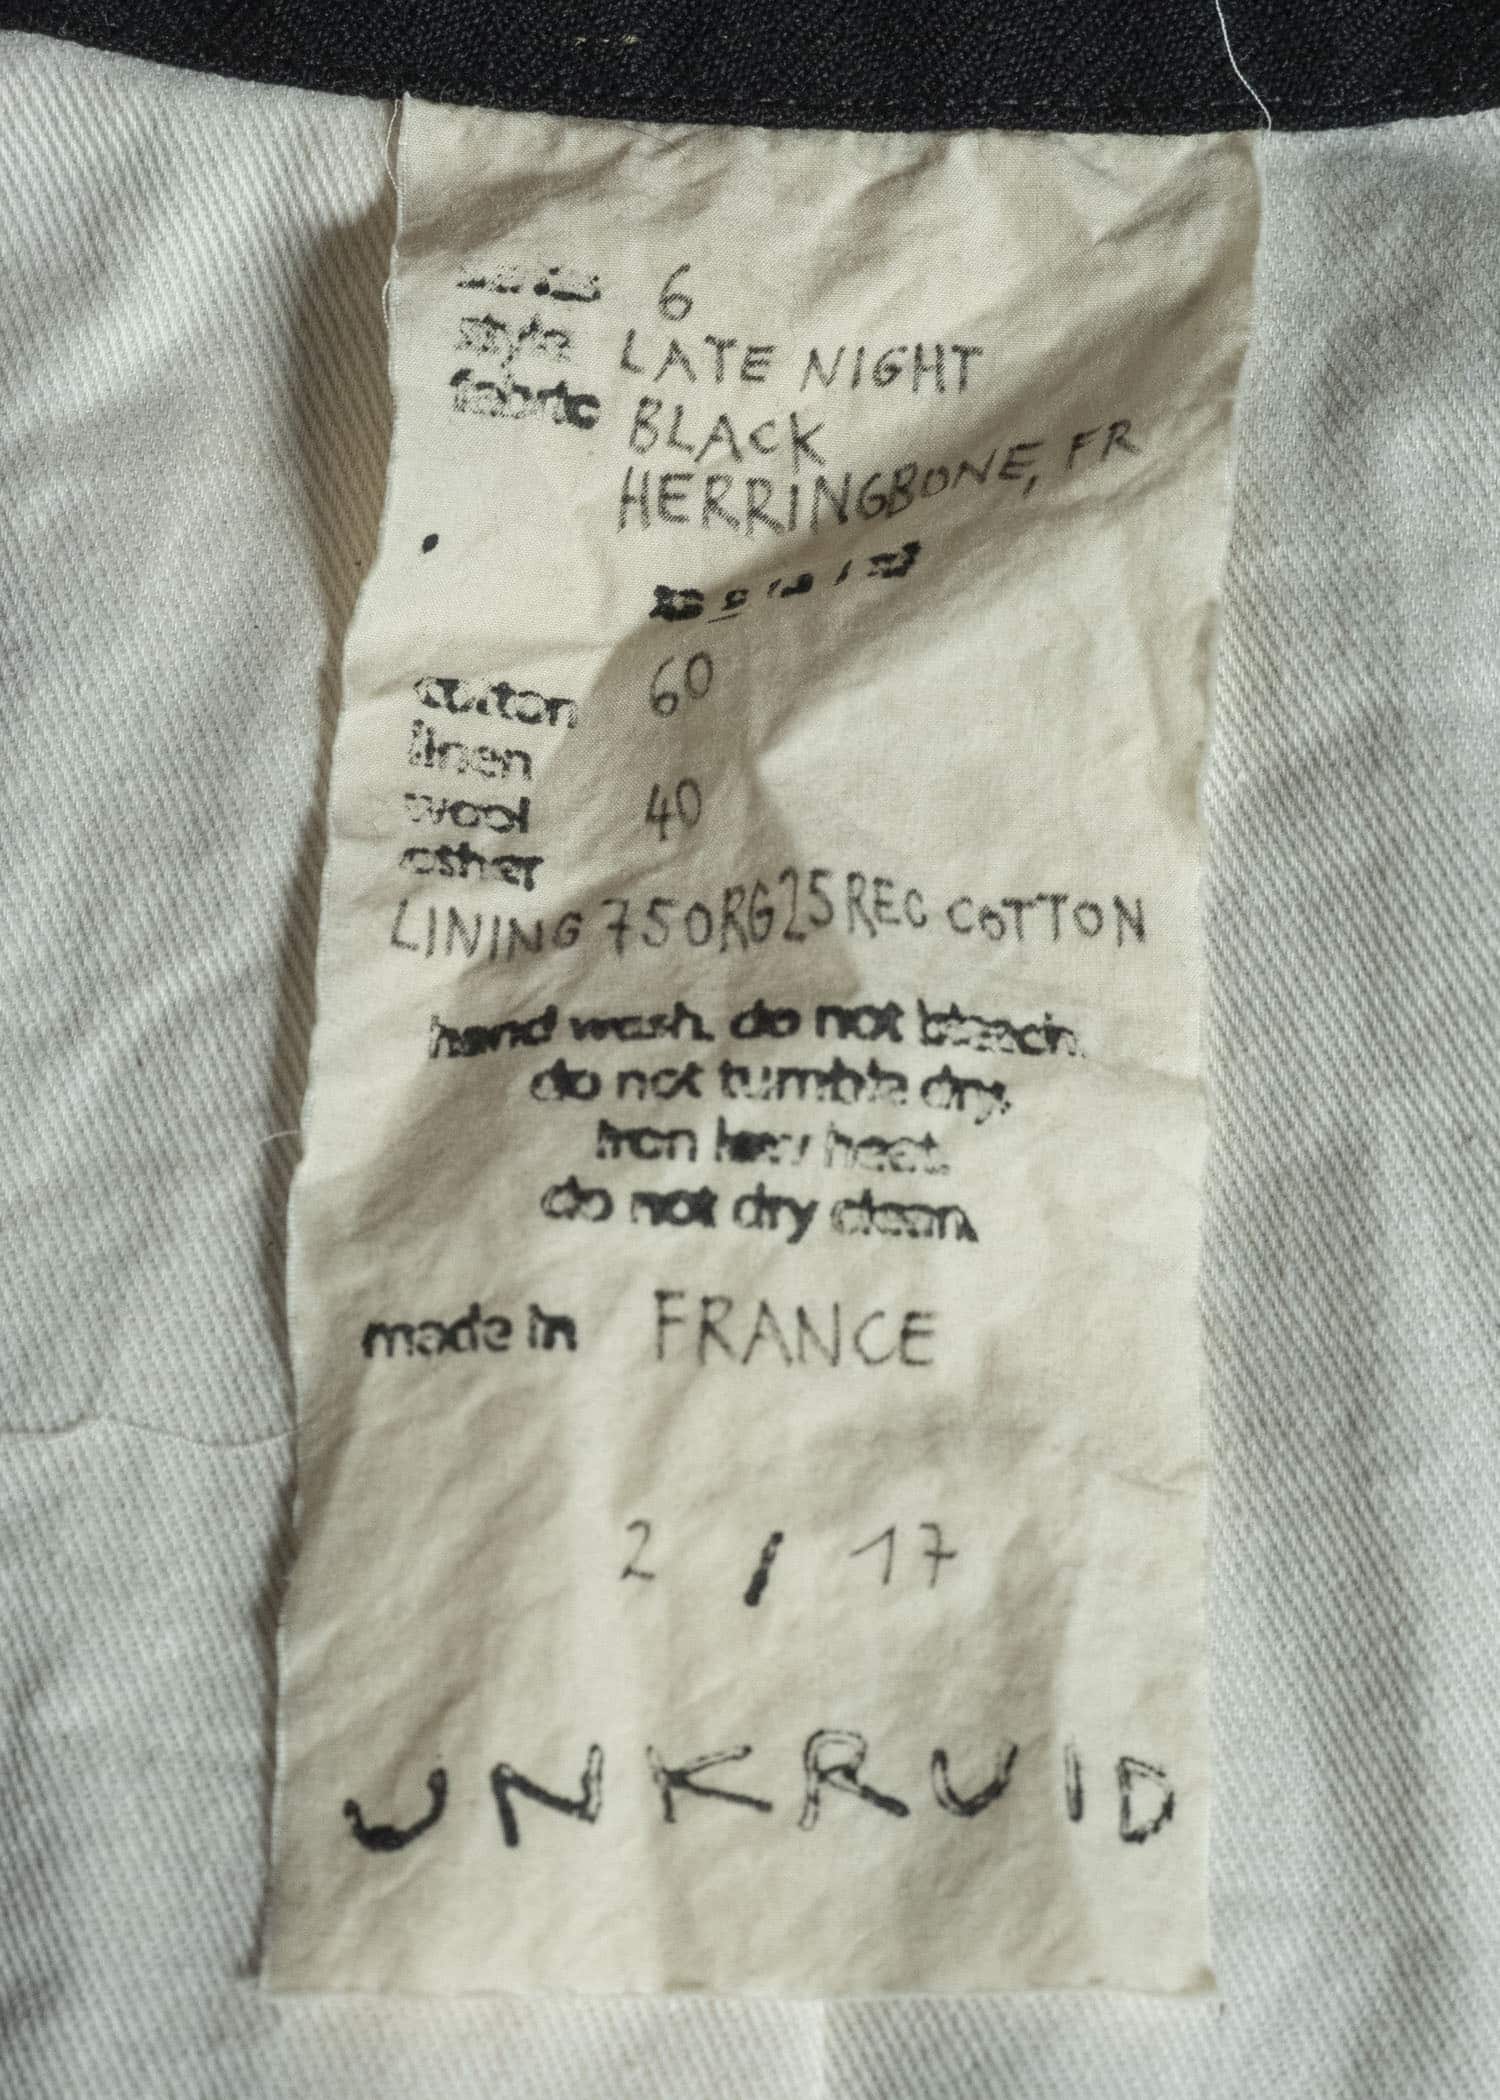 series 6
style LATE NIGHT
fabric BLACK
HERRINGBONE, FR
cotton 60
linen
wool 40
other
LINING 75ORG25REC COTTON
hand wash. do not bleach.
do not tumble dry.
iron low heat.
do not dry clean.
made in FRANCE
2 / 17
UNKRUID